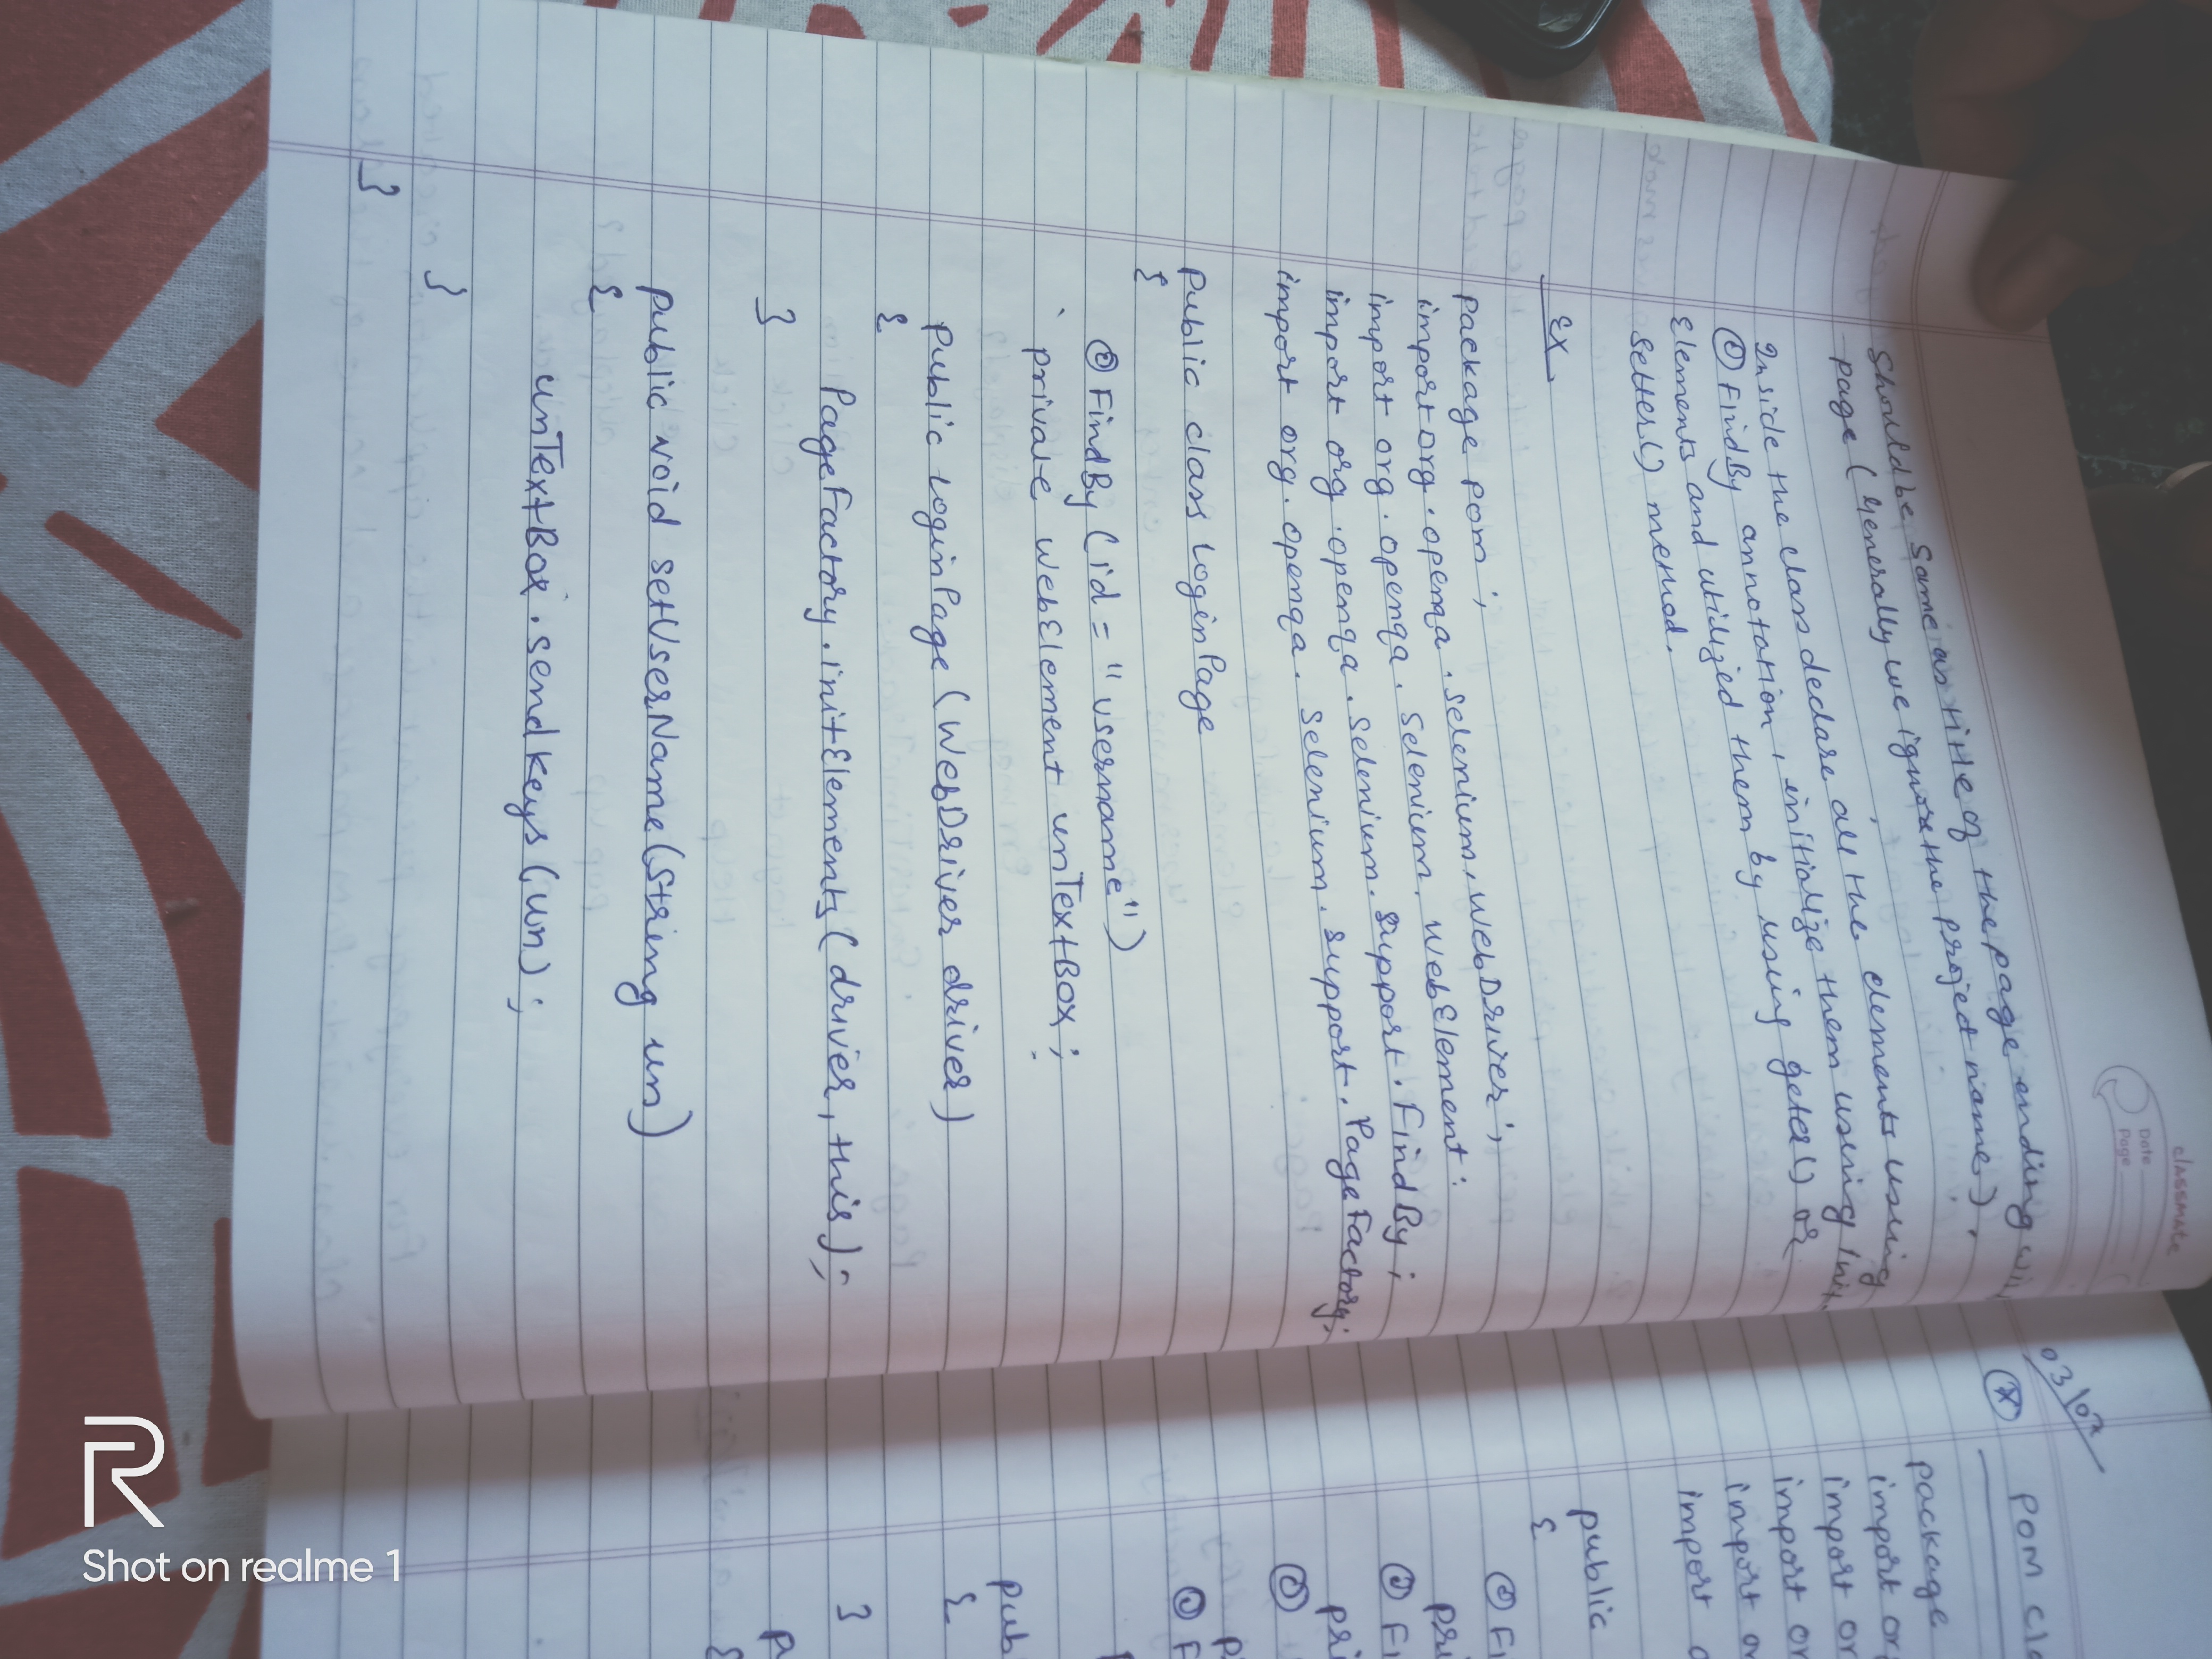 classmate
Date
Page
Should be same as title of the page ending
page (Generally we ignore the project name).
Inside the class declare all the elements using
@ FindBy annotation, initialize them using Init.
Elements and utilized them by using geter() or
Setter() method.
Ex
package pom ;
import org . openqa . selenium . WebDriver ;
import org . openqa . Selenium . WebElement :
import org . openqa . selenium . support . FindBy ;
import org . openqa . Selenium . support . PageFactory ;
Public class LoginPage
{
@ FindBy (id = "username")
private WebElement unTextBox ;
Public LoginPage (WebDriver driver)
{
PageFactory . initElements ( driver, this ) ;
}
public void setUserName (String un)
{
unTextBox . sendkeys (un) ;
}
}
03/07
POM
package
import
import
import
import
import
public
{
@
@
@
@
{
}
{
Shot on realme 1